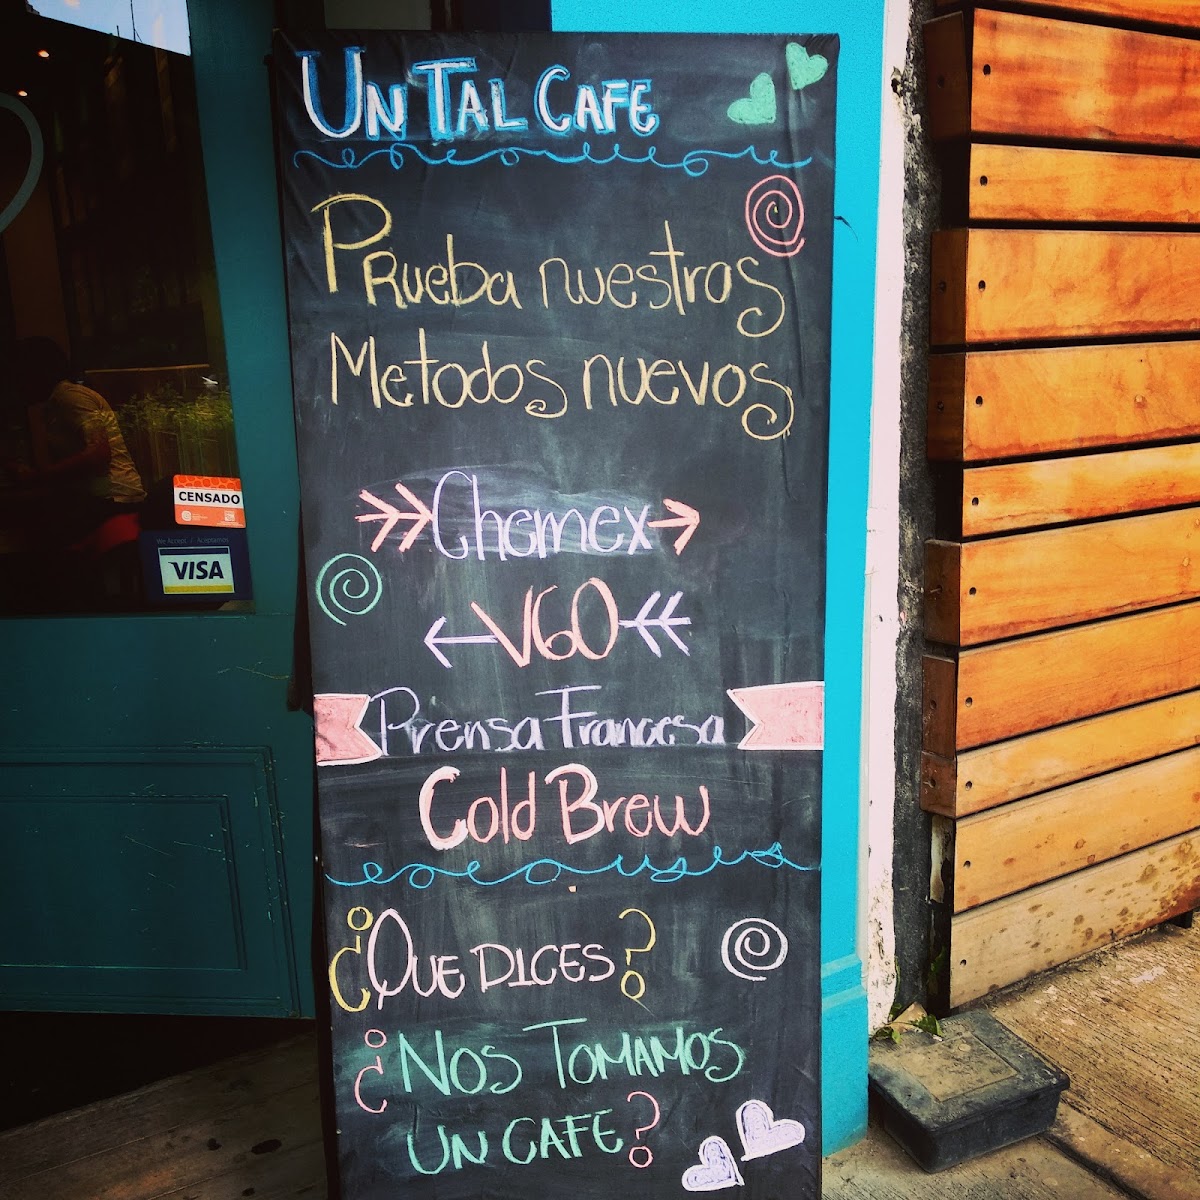 UN TAL CAFE
PRueba nuestros
Metodos nuevos
Chemex
V60
Prensa Francesa
Cold Brew
¿QUE DICES?
¿NOS TOMAMOS
UN CAFE?
CENSADO
We Accept / Aceptamos
VISA